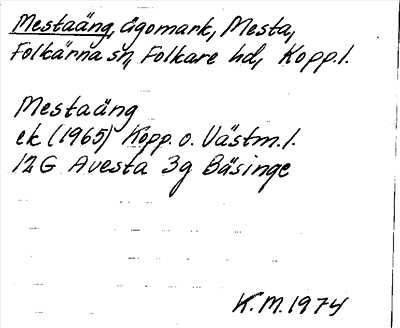 Mestaäng, ägomark, Mesta,
Folkärna sn, Folkare hd, Kopp.l.
Mestaäng
ek (1965) Kopp. o. Västm. l.
12G Avesta 3g Bäsinge
K.M. 1974